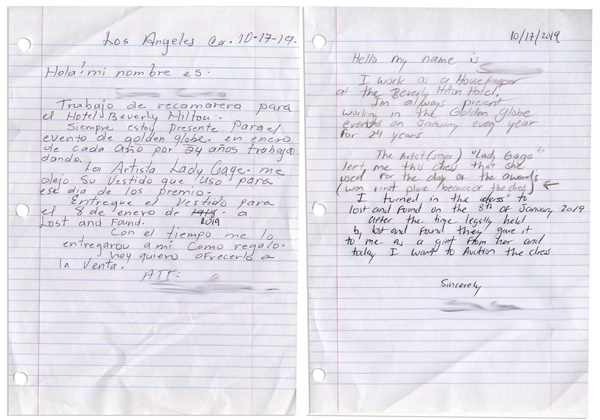 Los Angeles Ca. 10-17-19.
Hola! mi nombre es.
Trabajo de recamarera para
el Hotel Beverly Hilton.
Siempre estoy presente. para el
evento de golden globe. en enero
de cada año por 24 años trabaja
dando.
La Artista Lady Gage. me
dejo Su Vestido que Uso para
ese dia de los premio.
Entregue el Vestido para
el 8 de enero de 2019 a
Lost and Fand.
Con el tiempo me lo
entregarou a mi Como regalo.
hoy quiero ofrecerlo a
la Venta.
ATT:
10/17/2019
Hello my name is
I work as a Housekeeper
at the Beverly Hilton Hotel,
I'm always present
working in the Golden globe
events on January every year
for 24 years
The Artist (singer) "Lady Gaga"
left me this dress that she
used for the day of the awards
(won first place because of the dress) ←
I turned in the dress to
lost and found on the 8th of January 2019
after the time legally held
by lost and found they gave it
to me as a gift from her and
today I want to Auction the dress
Sincerely